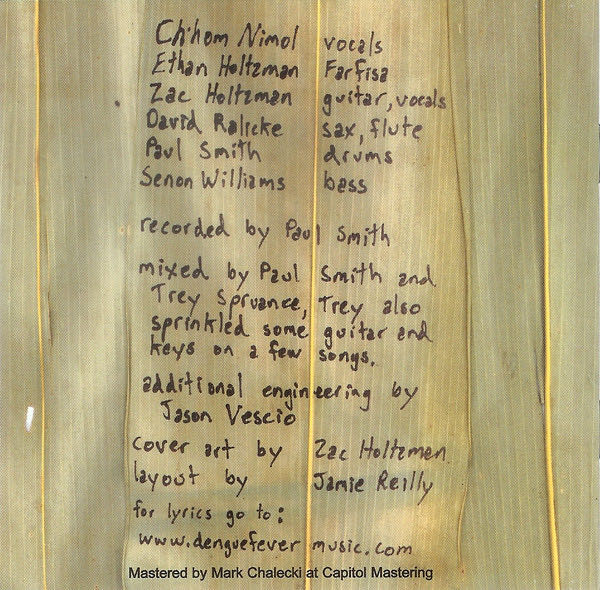 Ch'hom Nimol vocals
Ethan Holtzman Farfisa
Zac Holtzman guitar, vocals
David Ralicke sax, flute
Paul Smith drums
Senon Williams bass
recorded by Paul Smith
mixed by Paul Smith and
Trey Spruance, Trey also
sprinkled some guitar and
keys on a few songs.
additional engineering by
Jason Vescio
cover art by Zac Holtzman
layout by Jamie Reilly
for lyrics go to:
www.denguefevermusic.com
Mastered by Mark Chalecki at Capitol Mastering